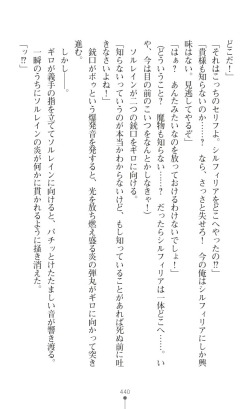 どこだ！」
「それはこっちのセリフよ。シルフィリアをどこへやったの⁉」
「貴様も知らないのか？　なら、さっさと失せろ！　今の俺はシルフィリアにしか興
味はない。見逃してやるぞ」
「はぁ？　あんたみたいなのを放っておけるわけないでしょ！」
（どういうこと？　魔物も知らない……？　だったらシルフィリアは一体どこへ……。
や、今は目の前のこいつをなんとかしなきゃ！）
ソルレインが二つの銃口をギロに向ける。
「知らないっていうのが本当かわからないけど、もし知っていることがあれば死ぬ前に吐
きなさいよね！」
銃口がボゥという爆発音を発すると、光を放ち燃え盛る炎の弾丸がギロに向かって突き
進む。
しかし――。
ギロが義手の指を立ててソルレインに向けると、パチッとけたたましい音が響き渡る。
一瞬のうちにソルレインの炎が何かに貫かれるように掻き消えた。
「ッ⁉」
440